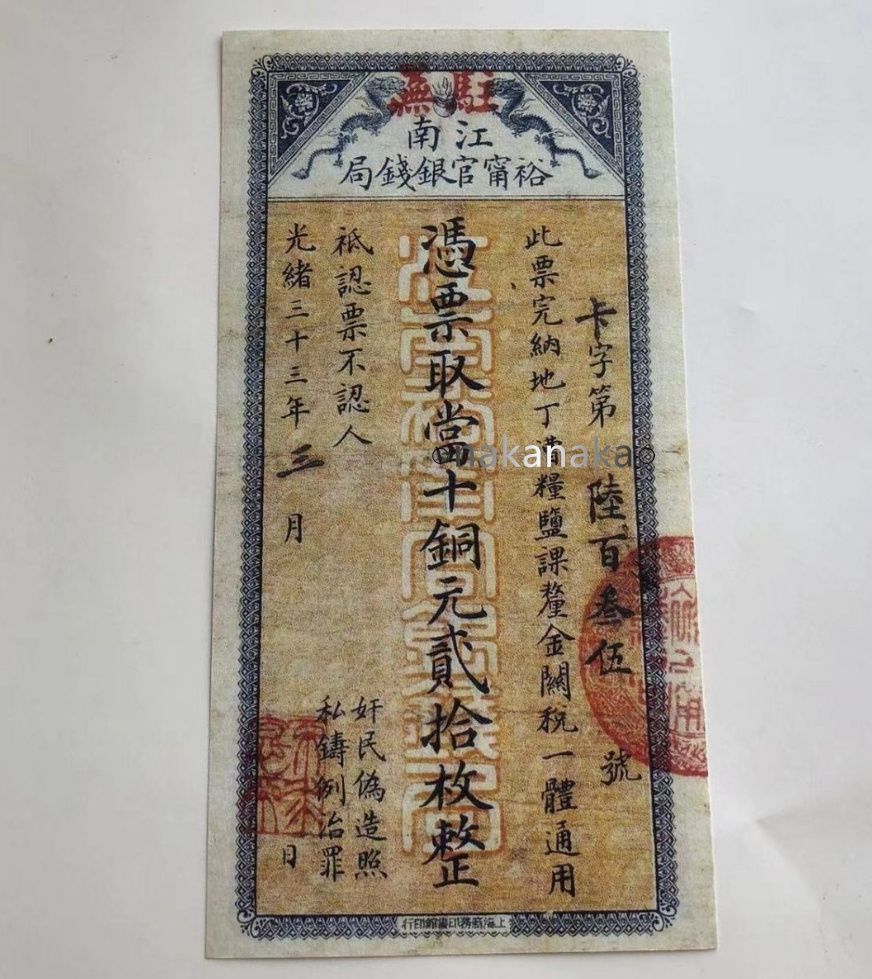 駐蕪
江南
裕甯官銀錢局
卡字第陸百叁伍號
此票完納地丁漕糧鹽課釐金關稅一體通用
憑票取當十銅元貳拾枚整
祗認票不認人
奸民偽造照
私鑄例治罪
光緒三十三年三月日
上海商務印書館印行
makanakao